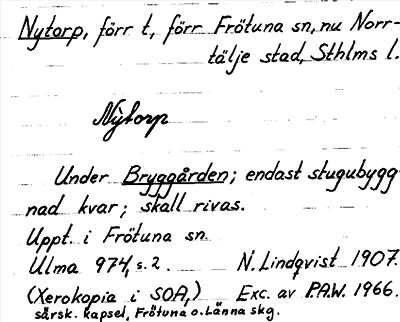 Nytorp, förr t, förr Frötuna sn, nu Norr-
tälje stad, Sthlms l.
Nỳtorp
Under Bryggården; endast stugubygg-
nad kvar; skall rivas.
Uppt. i Frötuna sn.
Ulma 974, s. 2. N. Lindqvist 1907.
(Xerokopia i SOA,) Exc. av P.A.W. 1966.
särsk. kapsel, Frötuna o. Länna skg.